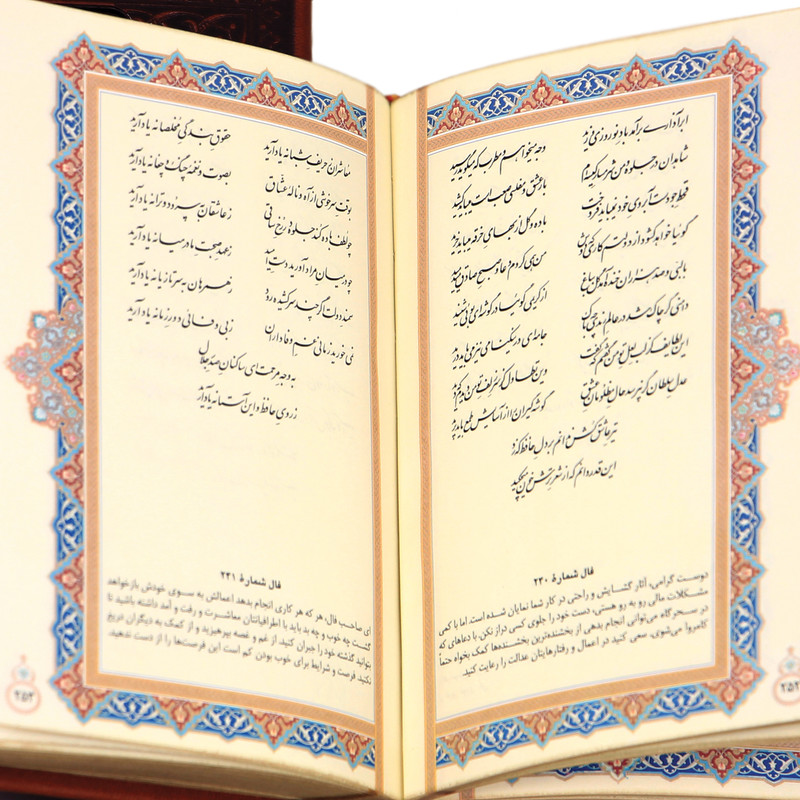 ابر آذاری برآمد باد نوروزی وزید
وجه می‌خواهم و مطرب که می‌گوید رسید
شاهدان در جلوه و من شرمسار کیسه‌ام
بار عشق و مفلسی صعب است می‌باید کشید
قحط جود است آبروی خود نمی‌باید فروخت
باده و گل از بهای خرقه می‌باید خرید
گوئیا خواهد گشود از دولتم کاری که دوش
من همی کردم دعا و صبح صادق می‌دمید
با لبی و صد هزاران خنده آمد گل بباغ
از کریمی گوئیا در گوشه‌ای بوئی شنید
دامنی گر چاک شد در عالم رندی چه باک
جامه‌ای در نیکنامی نیز می‌باید درید
این لطایف کز لب لعل تو من گفتم که گفت
وین تطاول کز سر زلف تو من دیدم که دید
عدل سلطان گر نپرسد حال مظلومان عشق
گوشه گیران را ز آسایش طمع باید برید
تیر عاشق کش ندانم بر دل حافظ که زد
این قدر دانم که از شعر ترش خون می‌چکید
فال شمارهٔ ۲۳۰
دوست گرامی، آثار گشایش و راحتی در کار شما نمایان شده است. اما با کمی
مشکلات مالی رو به رو هستی، دست خود را جلوی کسی دراز نکن. با دعاهای که
در سحرگاه می‌توانی انجام بدهی از بخشنده‌ترین بخشنده‌ها کمک بخواه حتماً
کامروا می‌شوی. سعی کنید در اعمال و رفتارهایتان عدالت را رعایت کنید.
۲۵۲
معاشران ز حریف شبانه یاد آرید
حقوق بندگی مخلصانه یاد آرید
بوقت سرخوشی از آه و نالهٔ عشاق
بصوت و نغمهٔ چنگ و چغانه یاد آرید
چو لطف باده کند جلوه در رخ ساقی
ز عاشقان بسرود و ترانه یاد آرید
چو در میان مراد آورید دست امید
ز عهد صحبت ما در میانه یاد آرید
سمند دولت اگر چند سرکشیده رود
ز همرهان بسر تازیانه یاد آرید
نمی‌خورید زمانی غم وفاداران
ز بی وفائی دور زمانه یاد آرید
به وجه مرحمت ای ساکنان صدر جلال
ز روی حافظ و این آستانه یاد آرید
فال شمارهٔ ۲۳۱
ای صاحب فال، هر که هر کاری انجام بدهد اعمالش به سوی خودش بازخواهد
گشت چه خوب و چه بد باید با اطرافیانتان معاشرت و رفت و آمد داشته باشید تا
بتوانید گذشته خود را جبران کنید. از غم و غصه بپرهیزید و از کمک به دیگران دریغ
نکنید. فرصت و شرایط برای خوب بودن کم است این فرصت‌ها را از دست ندهید.
۲۵۳